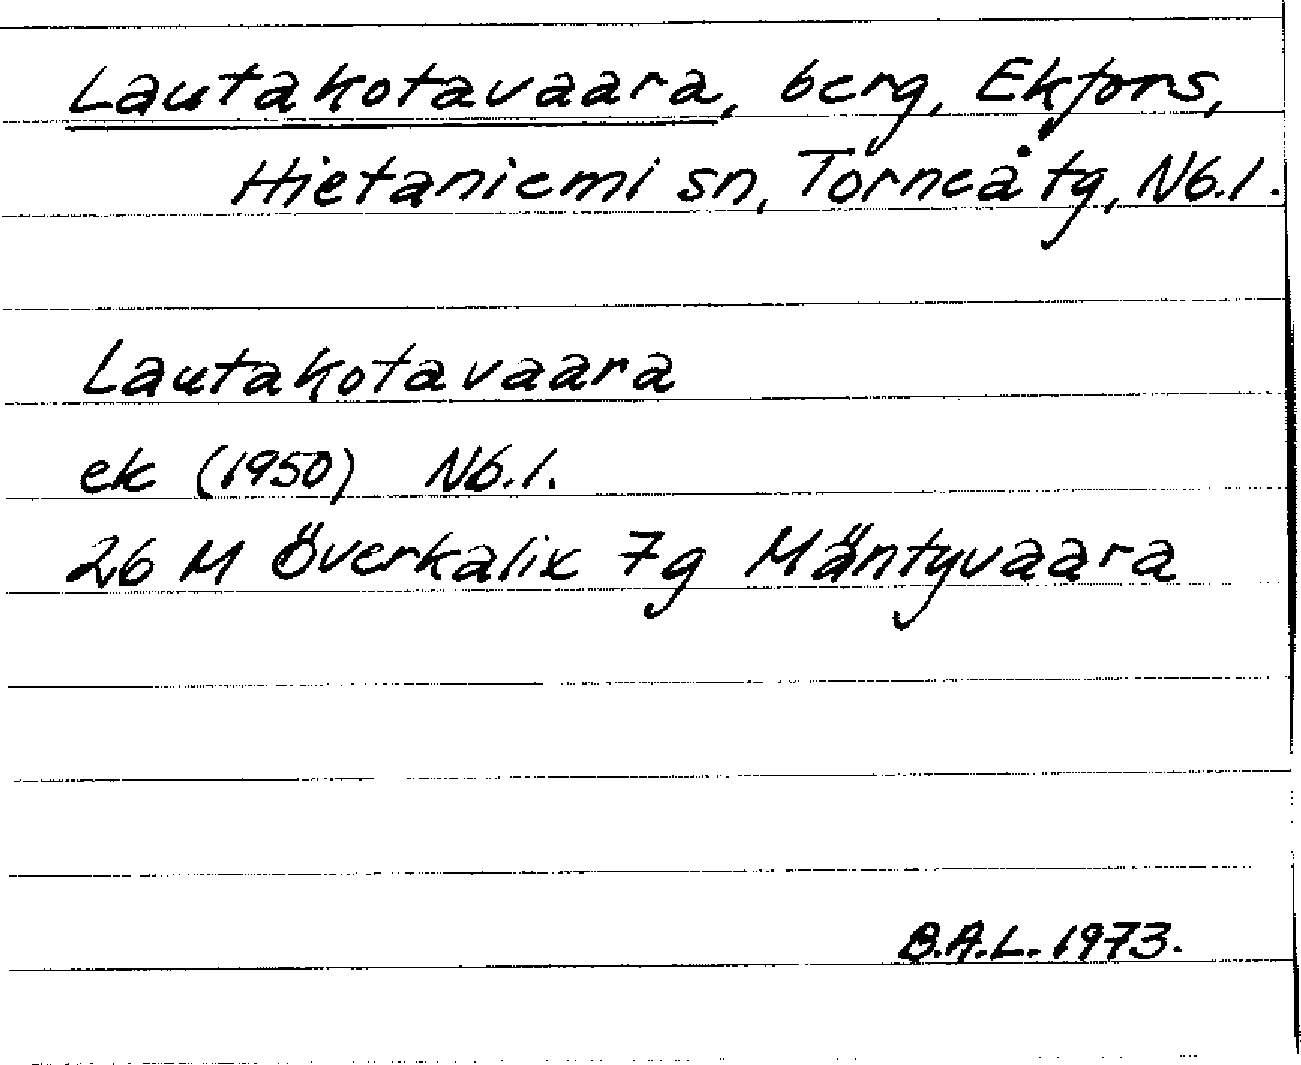 Lautakotavaara, berg, Ekfors,
Hietaniemi sn, Torneå tg, Nb.l.
Lautakotavaara
ek (1950) Nb.l.
26 M Överkalix 7g Mäntyvaara
B.A.L. 1973.